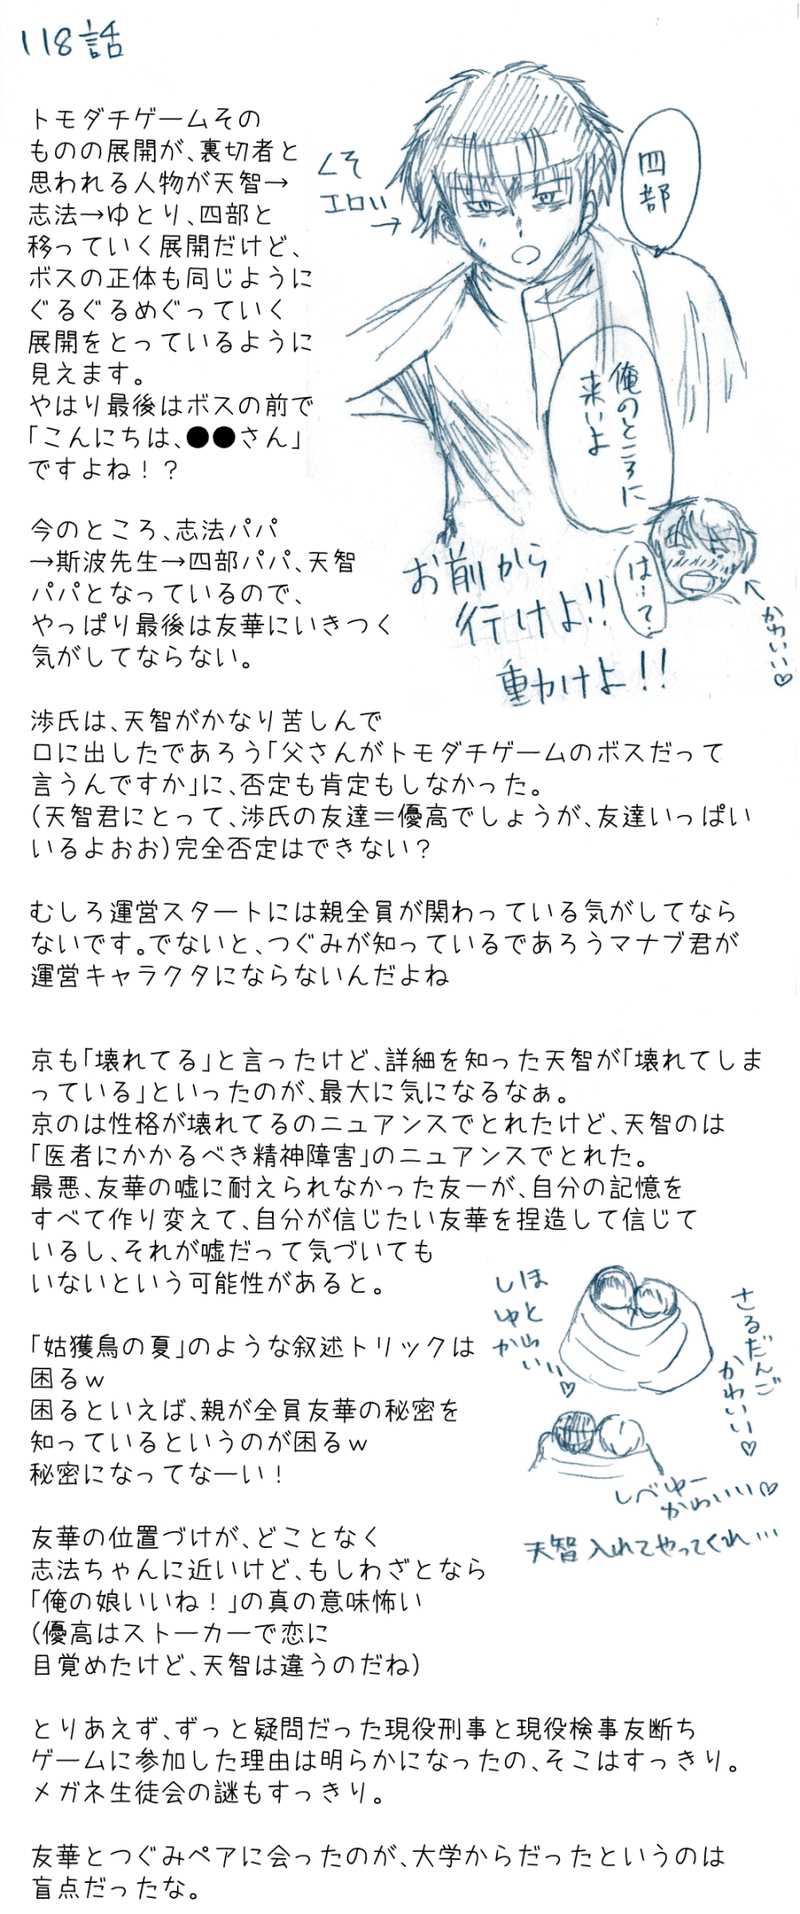 118話
トモダチゲームその
ものの展開が、裏切者と
思われる人物が天智→
志法→ゆとり、四部と
移っていく展開だけど、
ボスの正体も同じように
ぐるぐるめぐっていく
展開をとっているように
見えます。
やはり最後はボスの前で
「こんにちは、●●さん」
ですよね！？
くそ
エロい
→
四部
俺のところに
来いよ
お前から
行けよ!!
動けよ!!
は…て?
かわいい♡
今のところ、志法パパ
→斯波先生→四部パパ、天智
パパとなっているので、
やっぱり最後は友華にいきつく
気がしてならない。
渉氏は、天智がかなり苦しんで
口に出したであろう「父さんがトモダチゲームのボスだって
言うんですか」に、否定も肯定もしなかった。
(天智君にとって、渉氏の友達＝優高でしょうが、友達いっぱい
いるよおお)完全否定はできない？
むしろ運営スタートには親全員が関わっている気がしてなら
ないです。でないと、つぐみが知っているであろうマナブ君が
運営キャラクタにならないんだよね
京も「壊れてる」と言ったけど、詳細を知った天智が「壊れてしま
っている」といったのが、最大に気になるなぁ。
京のは性格が壊れてるのニュアンスでとれたけど、天智のは
「医者にかかるべき精神障害」のニュアンスでとれた。
最悪、友華の嘘に耐えられなかった友一が、自分の記憶を
すべて作り変えて、自分が信じたい友華を捏造して信じて
いるし、それが嘘だって気づいても
いないという可能性があると。
しほ
ゆと
かわ
いい♡
さるだんご
かわいい♡
「姑獲鳥の夏」のような叙述トリックは
困るｗ
困るといえば、親が全員友華の秘密を
知っているというのが困るｗ
秘密になってなーい！
しべゆー
かわいい♡
天智入れてやってくれ…
友華の位置づけが、どことなく
志法ちゃんに近いけど、もしわざとなら
「俺の娘いいね！」の真の意味怖い
(優高はストーカーで恋に
目覚めたけど、天智は違うのだね)
とりあえず、ずっと疑問だった現役刑事と現役検事友断ち
ゲームに参加した理由は明らかになったの、そこはすっきり。
メガネ生徒会の謎もすっきり。
友華とつぐみペアに会ったのが、大学からだったというのは
盲点だったな。